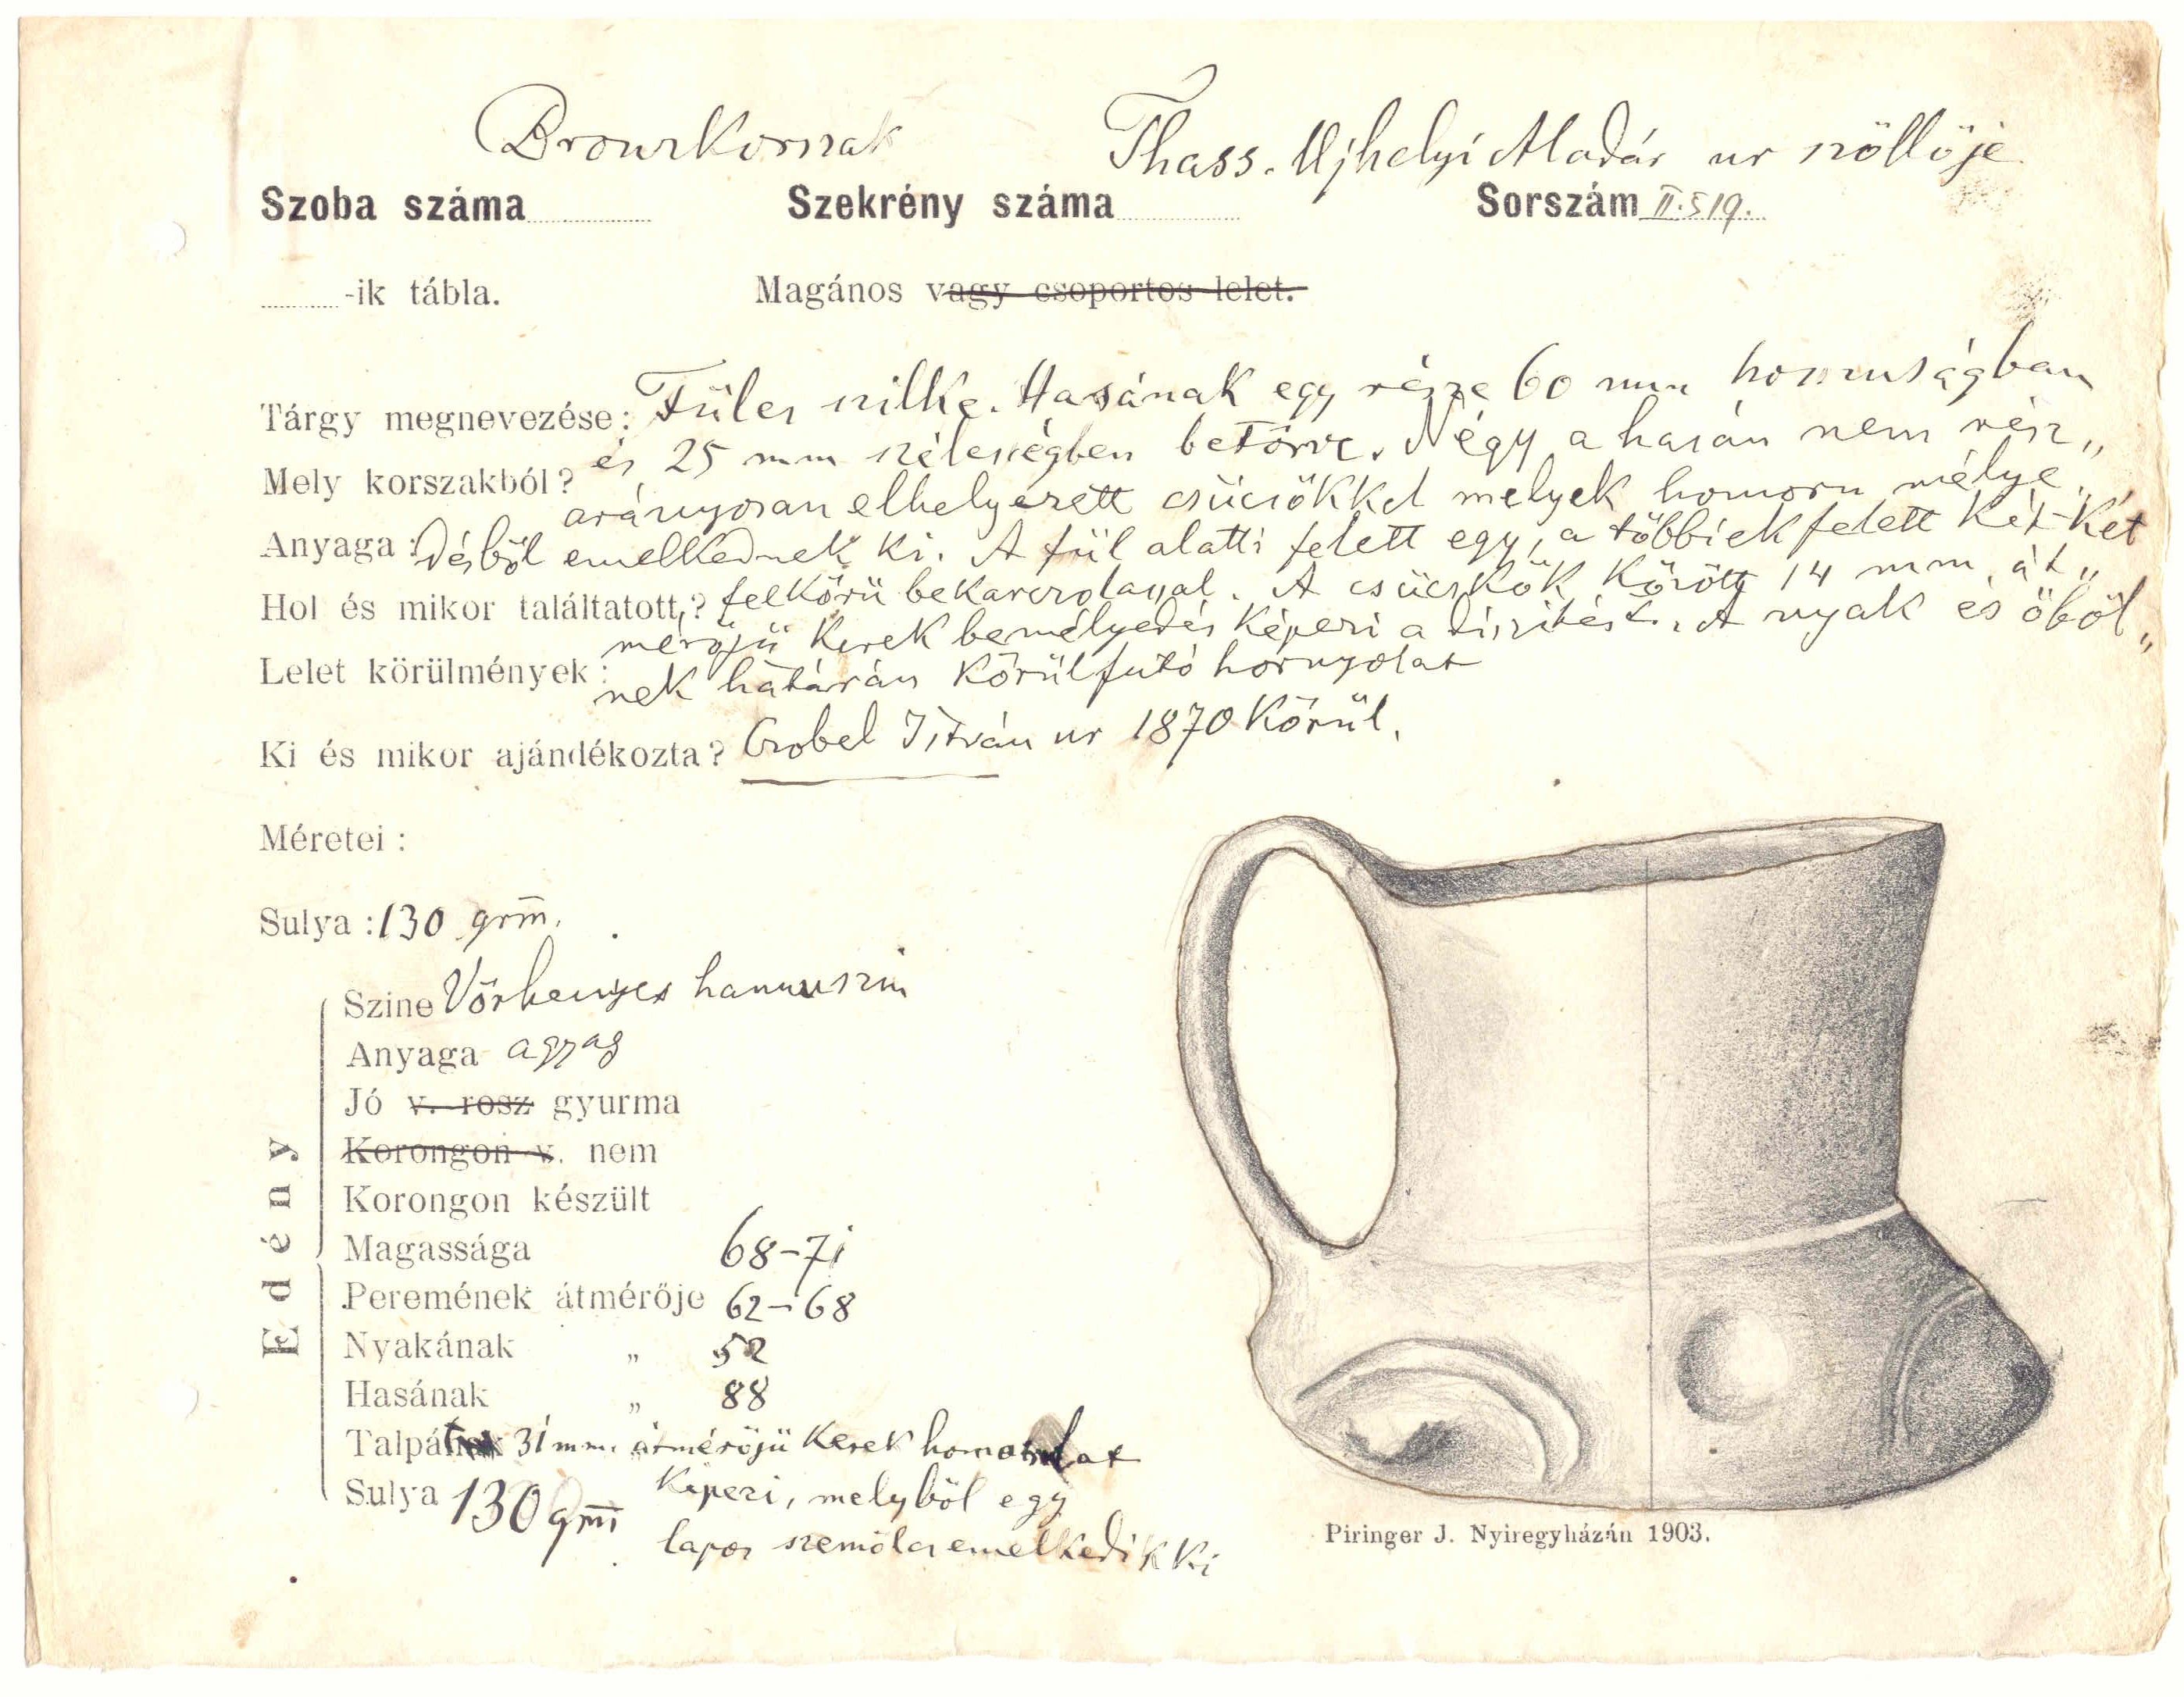 Bronzkorszak Thass. Ujhelyi Aladár ur szöllöje
Szoba száma Szekrény száma Sorszám II. 519.
-ik tábla. Magános vagy csoportos lelet.
Tárgy megnevezése: Füles szilke. Hasának egy része 60 mm hosszuságban
és 25 mm szélességben betörve. Négy a hasán nem rész„
Mely korszakból?
arányosan elhelyezett csücsökkel melyek homoru mélye„
Anyaga: désből emelkednek ki. A fül alatti felett egy, a többiek felett két-két
Hol és mikor találtatott? félkörü bekarczolással. A csücskök között 14 mm. át„
mérőjü kerek bemélyedés képezi a diszitést. A nyak és öböl„
Lelet körülmények:
nek határán körülfutó hornyolat
Ki és mikor ajándékozta? Czobel István ur 1870 körül.
Méretei:
Sulya: 130 grm.
Edény
Szine Vörhenyes hamuszin
Anyaga agyag
Jó v. rosz gyurma
Korongon v. nem
Korongon készült
Magassága 68-71
Peremének átmérője 62-68
Nyakának „ 52
Hasának „ 88
Talpát 31 mm. átmérőjü kerek homorulat
képezi, melyből egy
Sulya 130 grm
lapos szemölcs emelkedik ki
Piringer J. Nyiregyházán 1903.